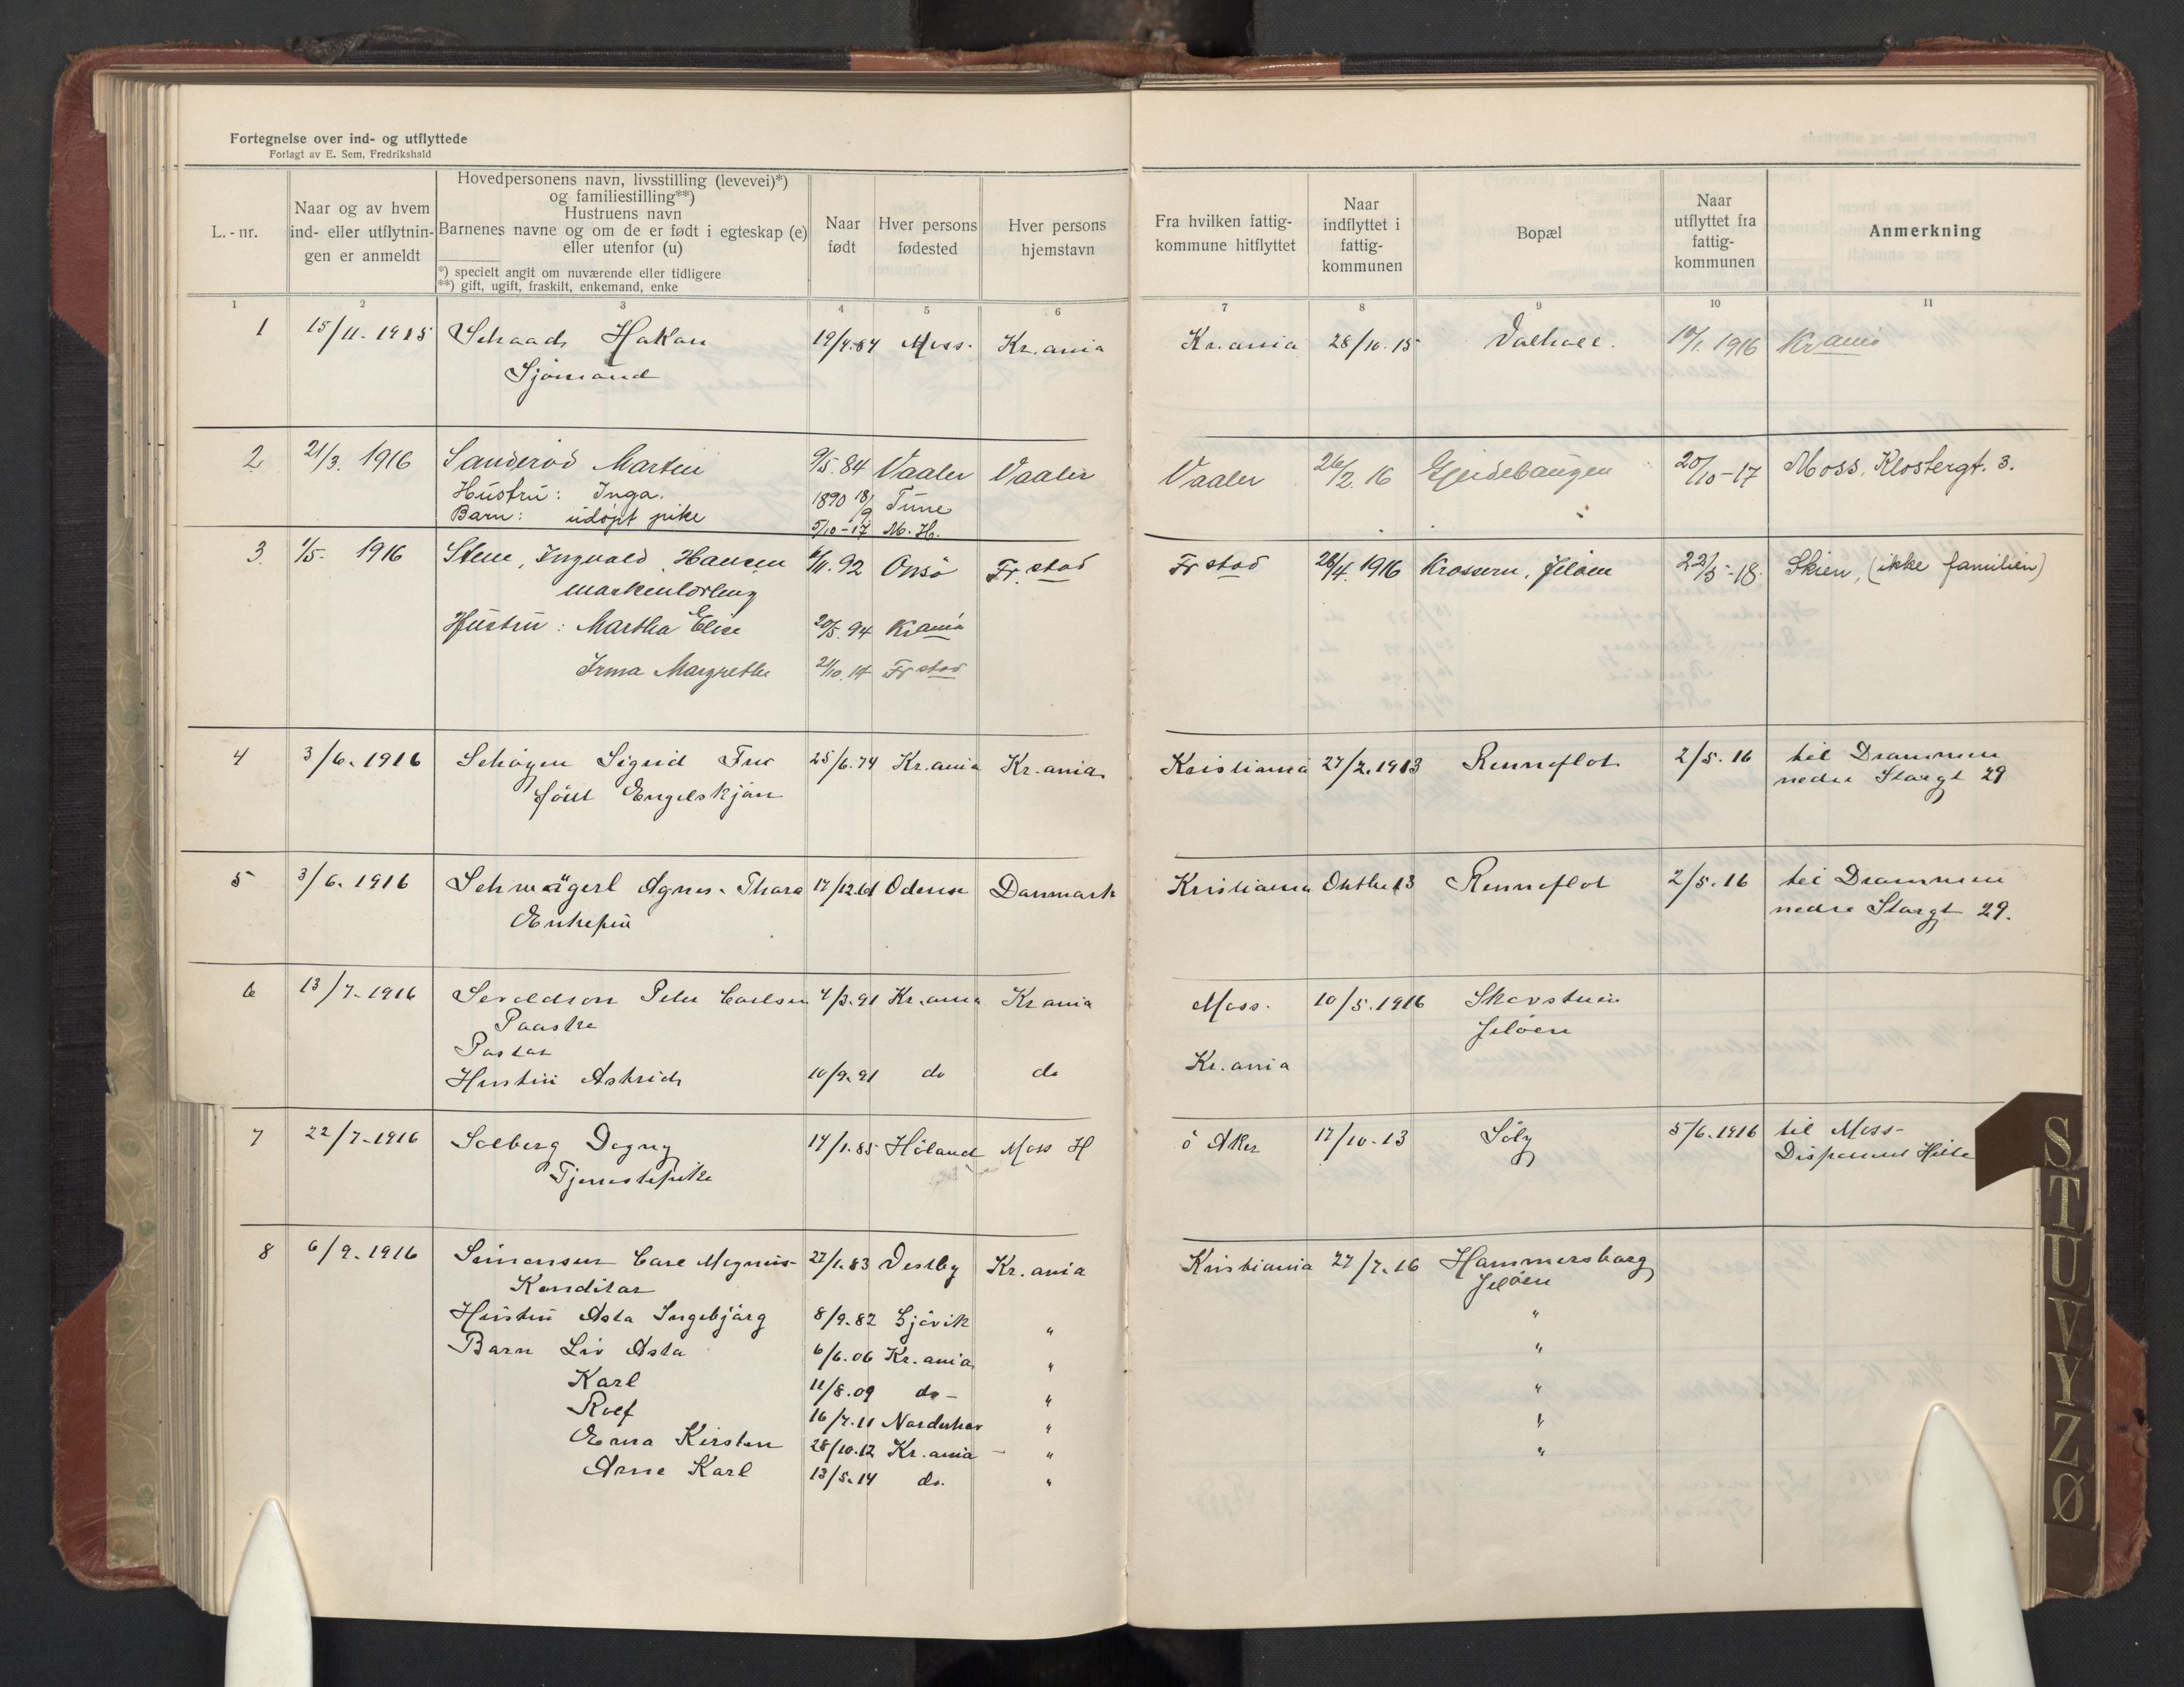 Fortegnelse over ind- og utflyttede
Forlagt av E. Sem, Fredrikshald
L.-nr.
Naar og av hvem
ind- eller utflytnin-
gen er anmeldt
Hovedpersonens navn, livsstilling (levevei)*)
og familiestilling**)
Hustruens navn
Barnenes navne og om de er født i egteskap (e)
eller utenfor (u)
*) specielt angit om nuværende eller tidligere
**) gift, ugift, fraskilt, enkemand, enke
Naar
født
Hver persons
fødested
Hver persons
hjemstavn
Fra hvilken fattig-
kommune hitflyttet
Naar
indflyttet i
fattig-
kommunen
Bopæl
Naar
utflyttet fra
fattig-
kommunen
Anmerkning
1 2 3 4 5 6 7 8 9 10 11
1 15/11-1915 Schaad Hakon 19/4.84 Moss. Kr.ania Kr.ania 28/10.15 Valhall. 1916 Kr ania
Sjömand
2 21/3. 1916 Sanderöd Martin 9/5.84 Vaaler Vaaler Vaaler 26/2.16 20/10-17 Moss, Klostergt. 3.
Hustru: Inga. 1890 18/9 Tune
Barn: udöpt pike 5/10-17 M.H.
3. 1/5- 1916 Stene, Ingvald Hansen 6/11.92 Onsö Fr.stad Fr stad 28/4.1916 Krossern, Jeløen 22/5-18. Skien, (ikke familien)
Hustru: Martha Elise 20/5.94 Kr ania
Irma Margrethe 21/10.14 Fr stad
4 3/6.1916 Schøyen Sigrid Fru 25/6.74 Kr.ania Kr.ania Kristiania 27/2.1913 Renneflot 2/5.16 til Drammen
född Engelskjøn nedre Storgt 29
5 3/6.1916 Schwägerl Agnes Thora 17/12.61 Odense Danmark Kristiania Oktbr 13 Renneflot 2/5.16 til Drammen
Enkefru nedre Storgt 29.
6 13/7-1916 Sevaldson Peter Carlsen 4/3.91 Kr.ania Kr ania Moss. 10/5.1916 Skovstuen
Paaske Jeløen
Pastor
Hustru Astrid 10/9.91 do do Kr.ania
7 22/7-1916 Solberg Dagny 14/1.85 Høland Moss H ö Aker 17/10-13 Soly 5/6.1916 til Moss-
Tjenestepike Disponent
8 6/9.1916 Simensen Carl Magnus 27/1.83 Vestby Kr.ania Kristiania 27/7.16 Hammersborg
Konditor Jeløen
Hustru Asta Ingebjørg 8/9.82 Gjøvik " "
Barn Liv Asta 6/6.06 Kr.ania " "
Karl 11/8.09 do- " "
Rolf 16/7.11 Norderhov " "
Erna Kirsten 28/10.12 Kr.ania - " "
Arne Karl 13/5.14 do. "
S
T
U
V
Y
Z
Ø